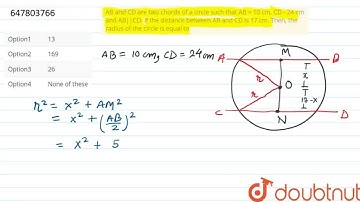 647803766
AB and CD are two chords of a circle such that AB = 10 cm, CD = 24 cm
and AB||CD. If the distance between AB and CD is 17 cm. Then, the
radius of the circle is equal to
Option1 13
Option2 169
Option3 26
Option4 None of these
AB = 10 cm, CD = 24 cm
A M B
r x
O
r 17-x
C N D
r² = x² + AM²
= x² + (AB/2)²
= x² + 5
doubtnut